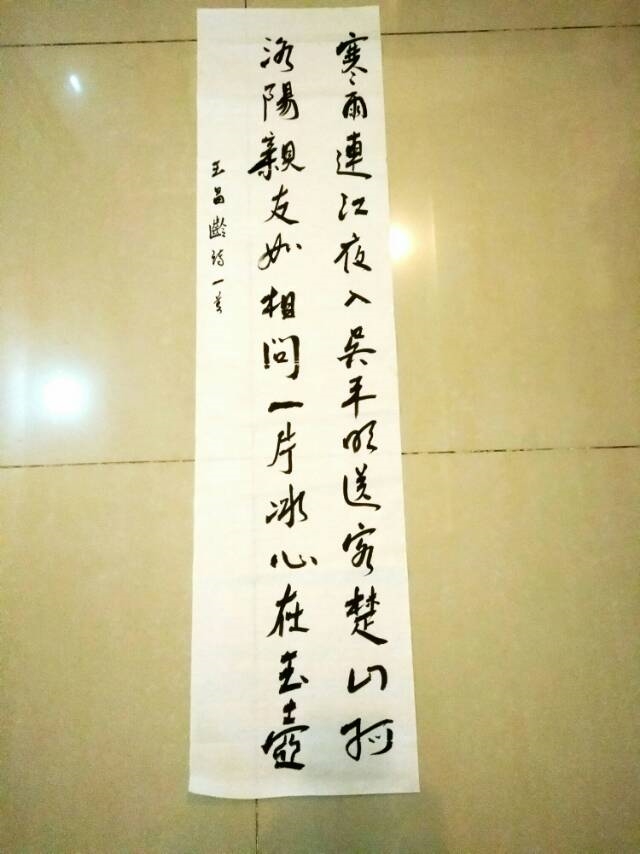 寒雨連江夜入吳平明送客楚山孤
洛陽親友如相問一片冰心在玉壺
王昌齡詩一首